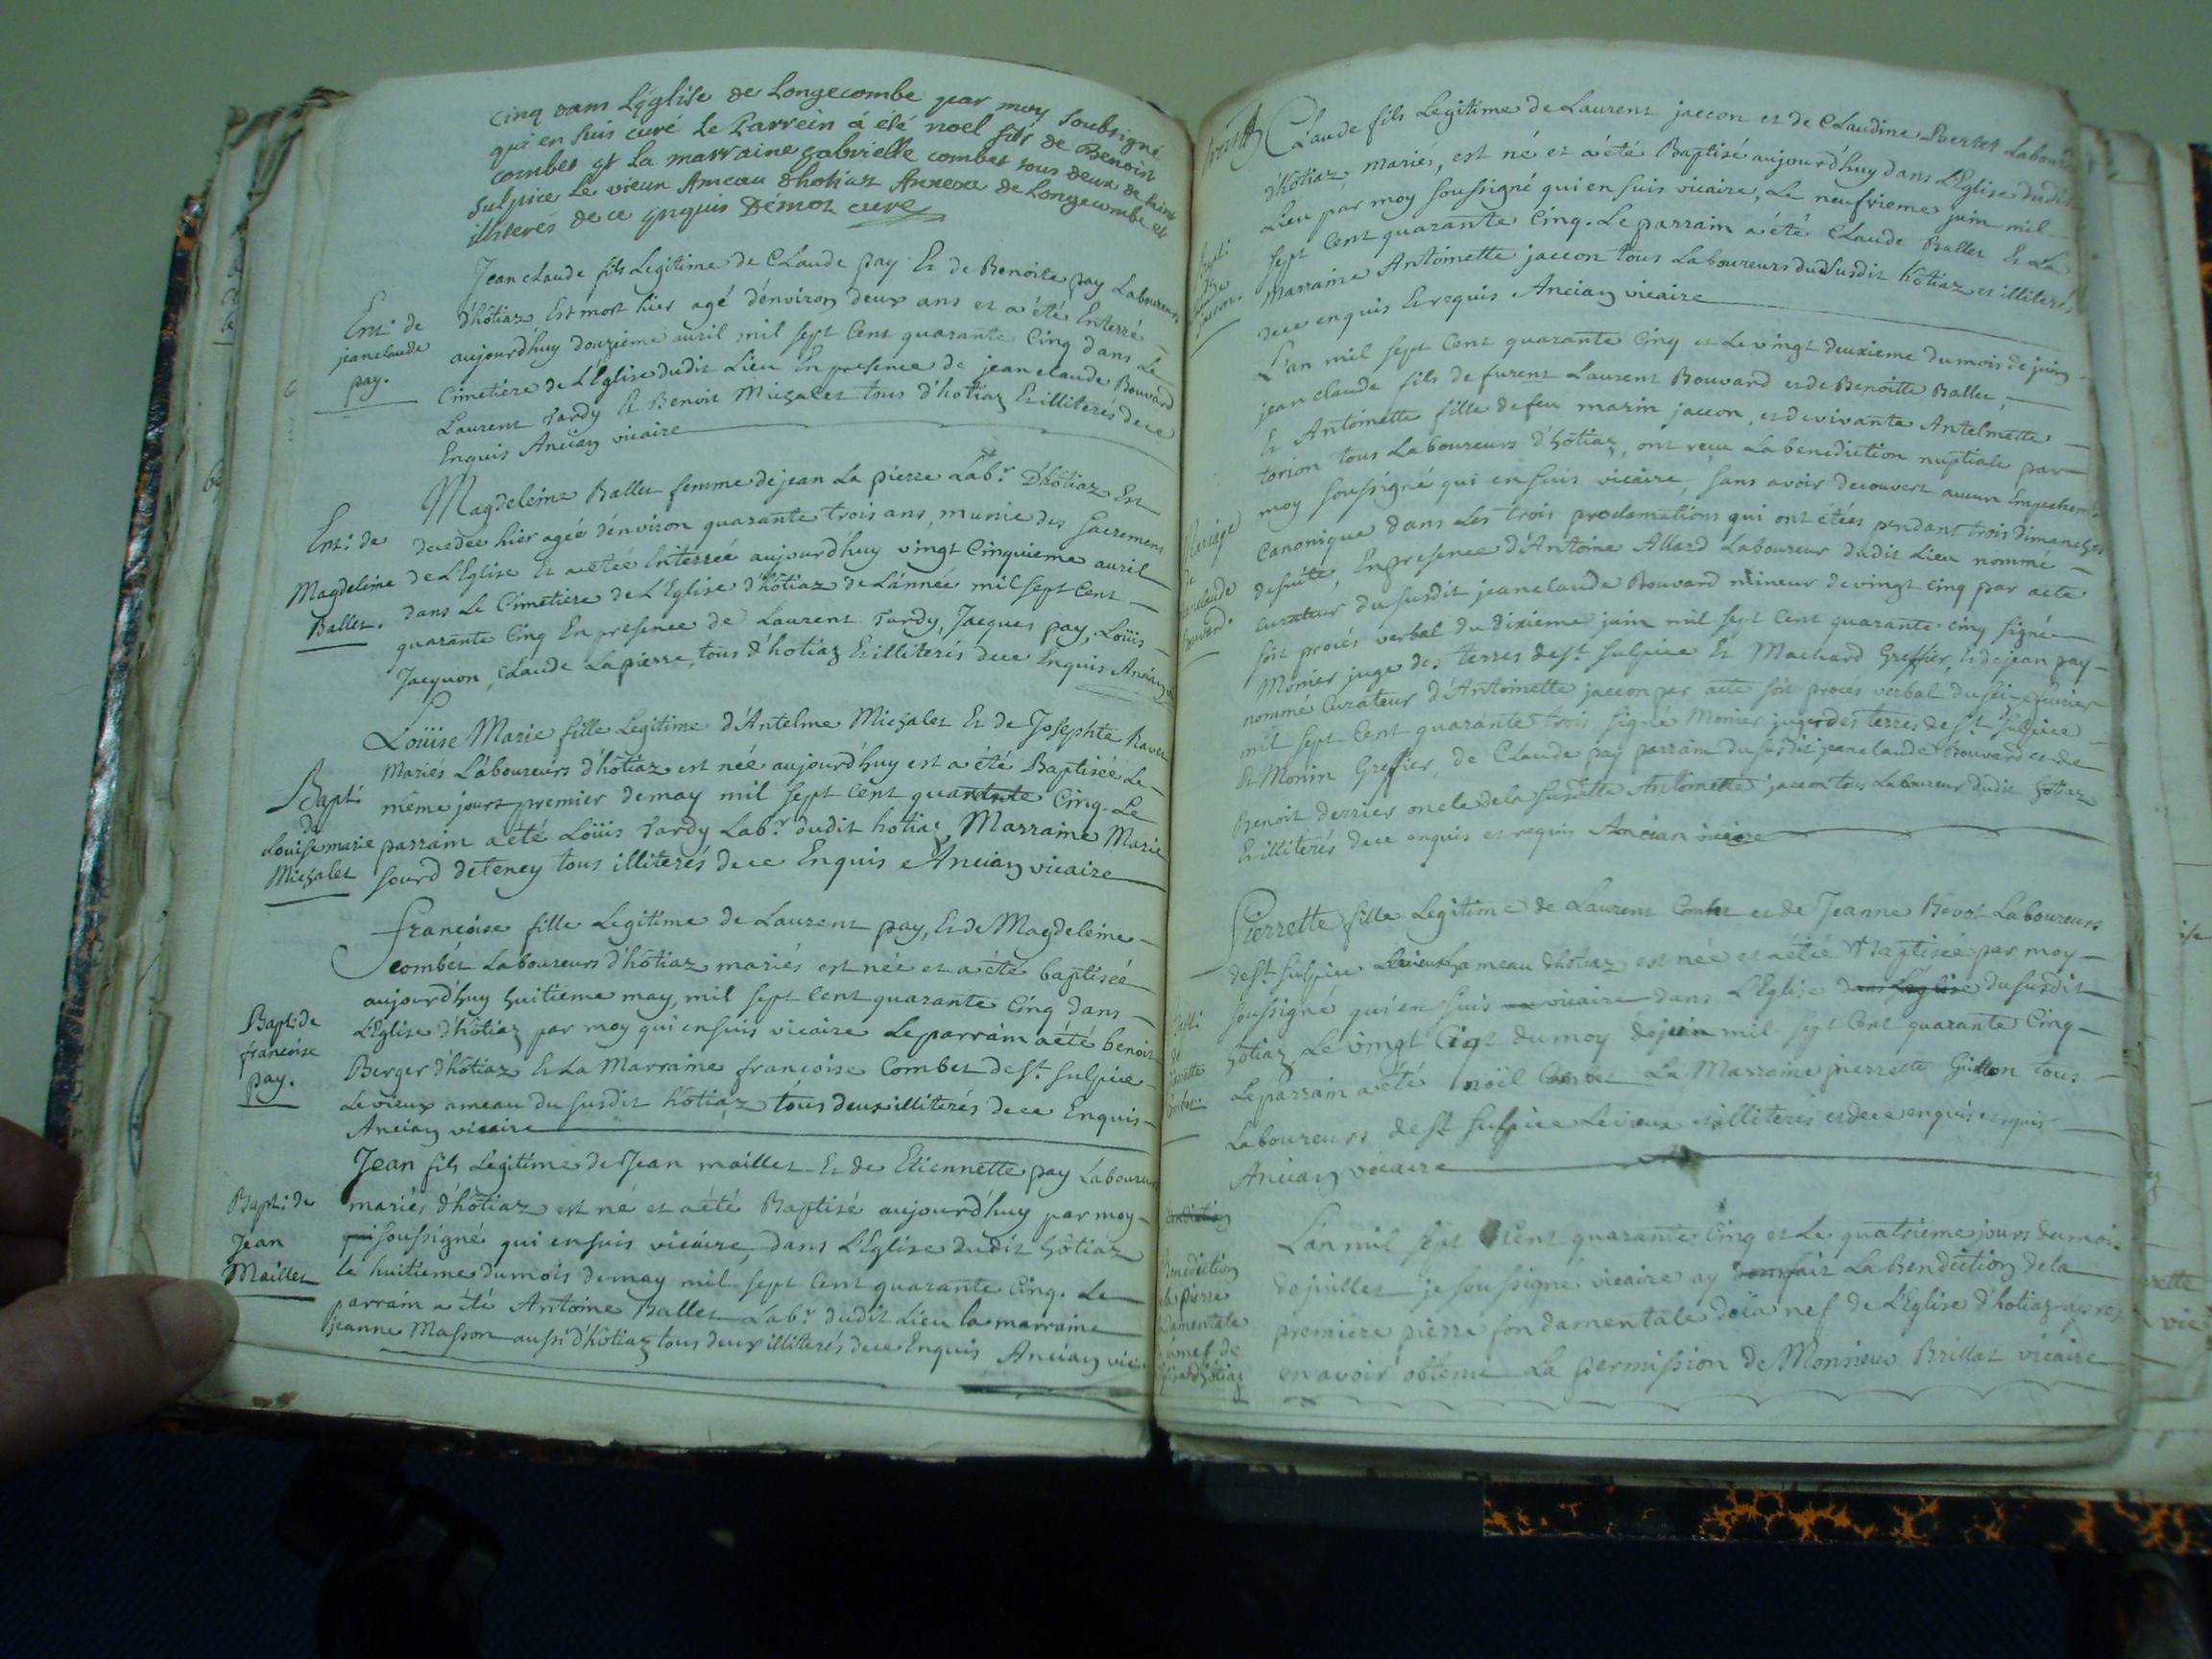 cinq dans L'église de Longecombe par moy soubsigné
qui en suis curé le Parrein a été noel fils de Benoist
combet et la marraine gabrielle combet tous deux de saint
sulpice le vieux Ameau d'hotiaz Annexe de Longecombe et
illiterés de ce enquis Démot curé
Jean claude fils Legitime de Claude pay Et de Benoite pay Laboureurs
d'hôtiaz Est mort hier agé d'environ deux ans et a été Enterré
aujourd'huy douzieme avril mil sept Cent quarante Cinq dans Le
Cimetiere de L'Eglise dudit Lieu En presence de jean claude Bouvard
Laurent Tardy Et Benoit Michalet tous d'hotiaz Et illiterés de ce
Enquis Ancian vicaire
Ent: de
jean claude
pay.
Magdeleine Ballet femme de jean La pierre Lab.r D'hôtiaz Est
decedée hier ageé d'environ quarante trois ans, munie des Sacremens
de L'Eglise Et a etée Enterreé aujourd'huy vingt Cinquieme avril
dans Le Cimetiere de L'Eglise d'hôtiaz de L'année mil sept Cent
quarante Cinq En presence de Laurent Tardy, Jacques pay, Loüis
Jacquon, Claude Lapierre, tous d'hotiaz Et illiterés de ce Enquis Ancian
Ent: de
Magdeleine
Ballet.
Loüise Marie fille Legitime d'Antelme Michalet Et de Josephte Ravet
Mariés Laboureurs d'hôtiaz est née aujourd'huy est a été Baptisée Le
même jours premier de may mil sept Cent quarante Cinq. Le
parrain a été Loüis Tardy Lab.r dudit hotiaz, Marraine Marie
sourd de teney tous illiterés de ce Enquis Ancian vicaire
Bapt:
de
Louise marie
Michalet
francoise fille Legitime de Laurent pay, Et de Magdeleine
combet Laboureurs d'hôtiaz mariés est née et a été baptisée
aujourd'huy huitieme may, mil sept Cent quarante Cinq dans
L'Eglise d'hôtiaz par moy qui en suis vicaire Le parrain a été benoit
Berger d'hôtiaz Et La Marraine francoise Combet de St. Sulpice
Le vieux ameau du susdit hôtiaz tous deux illiterés de ce Enquis
Ancian vicaire
Bapt: de
francoise
pay.
Jean fils Legitime de Jean maillet Et de Etiennette pay Laboureurs
mariés d'hôtiaz est né et a été Baptisé aujourd'huy par moy
soussigné qui en suis vicaire, dans L'Eglise dudit hôtiaz
le huitieme du mois de may mil sept Cent quarante Cinq. Le
parrain a été Antoine Ballet Lab.r dudit Lieu la marraine
jeanne Masson aussi d'hôtiaz tous deux illiterés de ce Enquis Ancian vic
Bapt: de
Jean
Maillet
Claude fils Legitime de Laurent jaccon et de Claudine Labour
d'hôtiaz mariés, est né et a été Baptisé aujourd'huy dans L'Eglise dudit
Lieu par moy soussigné qui en suis vicaire, Le neufvieme juin mil
sept Cent quarante Cinq. Le parrain a été Claude Ballet Et La
Marraine Antoinette jaccon tous Laboureurs du Susdit hôtiaz et illiterés
de ce enquis Et requis Ancian vicaire
L'an mil sept Cent quarante Cinq et Le vingt deuxieme du mois de juin
jean claude fils de furent Laurent Bouvard et de Benoitte Ballet,
Et Antoinette fille de feu marin jaccon, et de vivante Antelmette
torion tous Laboureurs d'hôtiaz, ont reçu La benediction nuptiale par
moy soussigné qui en suis vicaire, sans avoir decouvert aucun Empechem.
Canonique dans Les trois proclamations qui ont étées pendant trois dimanches
de suite, En presence d'Antoine Allard Laboureur dudit Lieu nommé
curateur du susdit jean claude Bouvard mineur de vingt cinq par acte
soit procés verbal du dixieme juin mil sept Cent quarante cinq signé
Monier juge des terres de St. Sulpice Et Machard Greffier, Et de jean pay
nommé Curateur d'Antoinette jaccon par acte soit procés verbal du
mil sept Cent quarante trois signé Monier juge des terres de St. Sulpice
Et Monin Greffier, de Claude pay parrain du susdit jean claude Bouvard et de
Benoit derrier oncle de la susditte Antoinette jaccon tous Laboureur dudit hôtiaz
Et illiterés de ce enquis et requis Ancian vicaire
Mariage
de
jean claude
Bouvard.
Pierrette fille Legitime de Laurent Combet et de Jeanne Bevot Laboureurs
de St. Sulpice Le vieux hameau d'hôtiaz est née et a étée Baptisée par moy
soussigné qui en suis vicaire dans L'Eglise dans L'eglise du susdit
hôtiaz Le vingt du moy de juin mil sept Cent quarante Cinq
Le parrain a été noël Combet La Marraine pierrette Guillon tous
Laboureurs de St. Sulpice Le vieux illiterés et de ce enquis et requis
Ancian vicaire
L'an mil sept Cent quarante Cinq et Le quatrieme jours du mois
de juillet je soussigné vicaire ay fait La benediction de la
premiere pierre fondamentale de la nef de L'Eglise d'hotiaz apres
en avoir obtenu La permission de Monsieur Brillat vicaire
Benediction
de la pierre
fondamentale